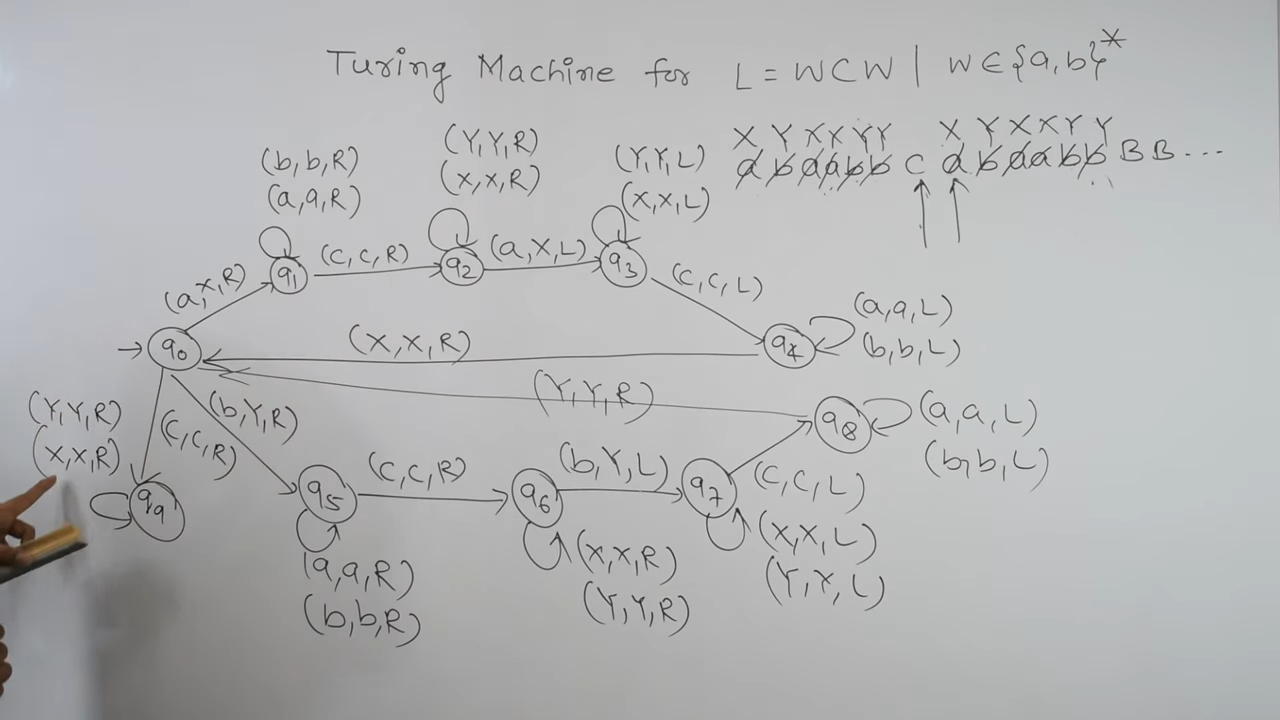 Turing Machine for L = WCW | W∈{a,b}*
X Y X X Y Y X Y X X Y Y
a b a a b b C a b a a b b B B ...
(b,b,R)
(a,a,R)
(Y,Y,R)
(X,X,R)
(Y,Y,L)
(X,X,L)
(a,X,R)
q1
(C,C,R)
q2
(a,X,L)
q3
(C,C,L)
q0
(X,X,R)
q4
(a,a,L)
(b,b,L)
(Y,Y,R)
q8
(a,a,L)
(b,b,L)
(Y,Y,R)
(X,X,R)
(C,C,R)
(b,Y,R)
q9
q5
(C,C,R)
q6
(b,Y,L)
q7
(C,C,L)
(a,a,R)
(b,b,R)
(X,X,R)
(Y,Y,R)
(X,X,L)
(Y,X,L)